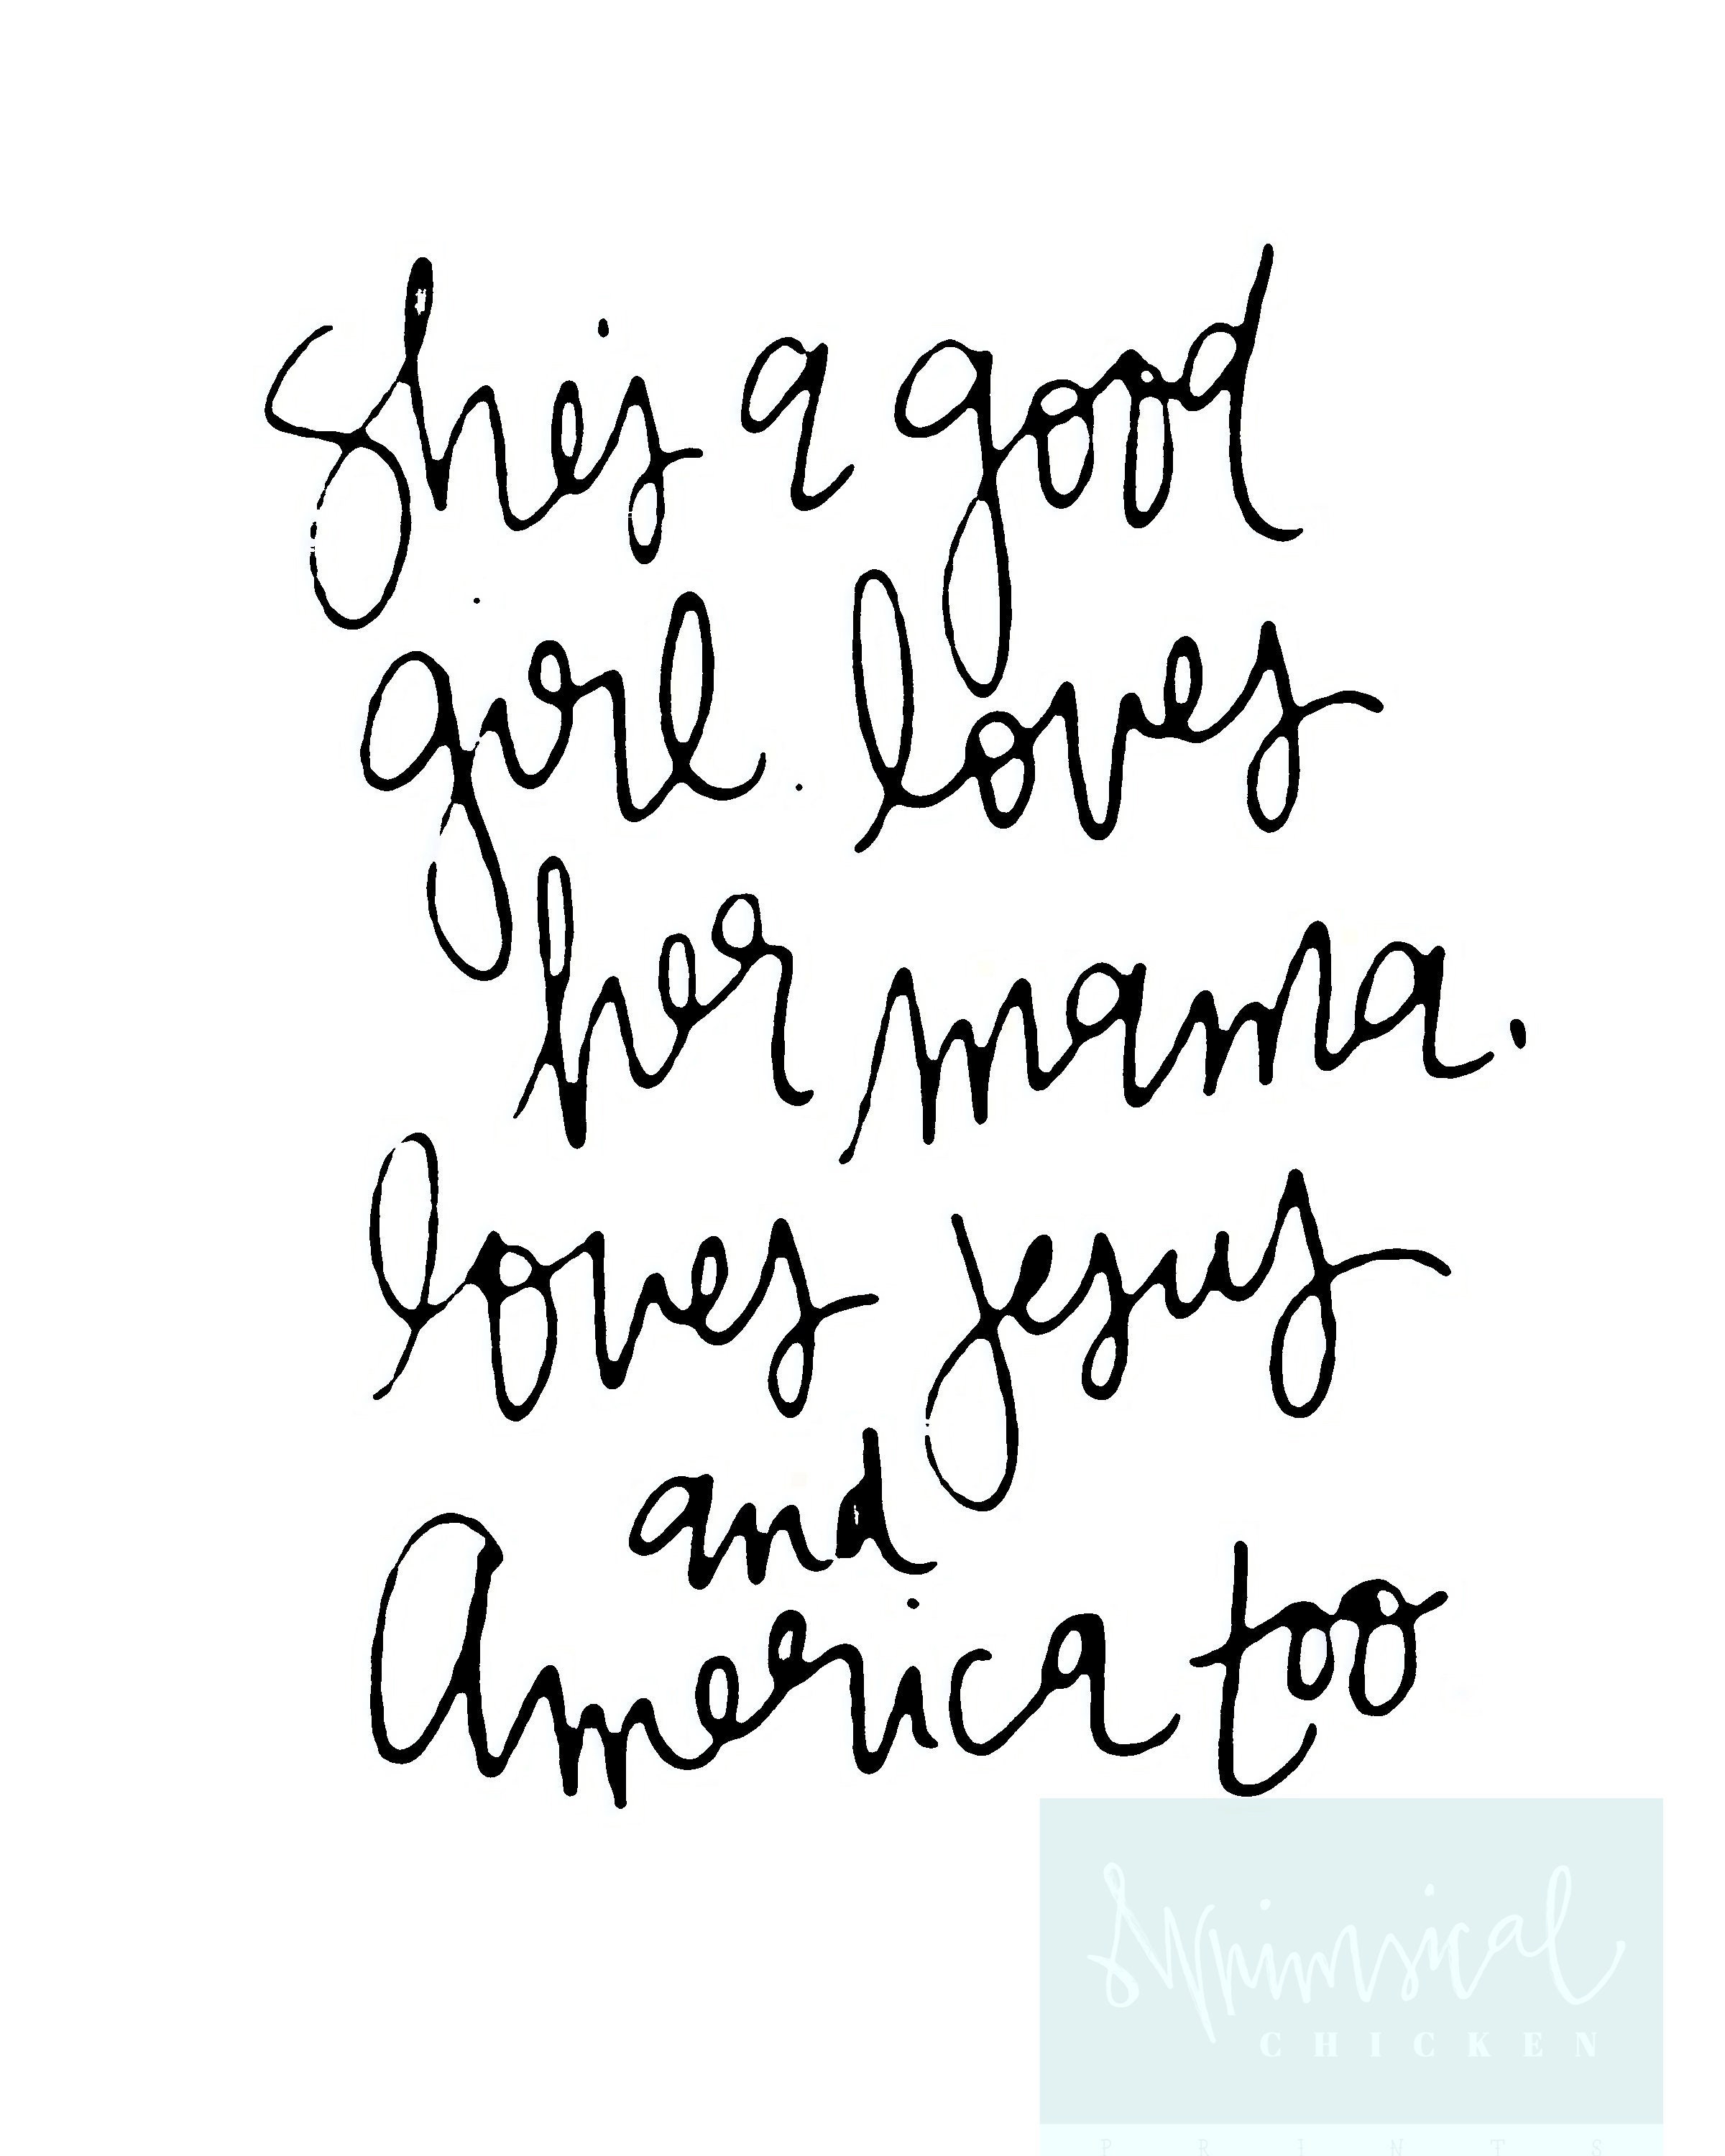 She's a good
girl. loves
her mama.
loves jesus
and
America too
Whimsical
CHICKEN
PRINTS